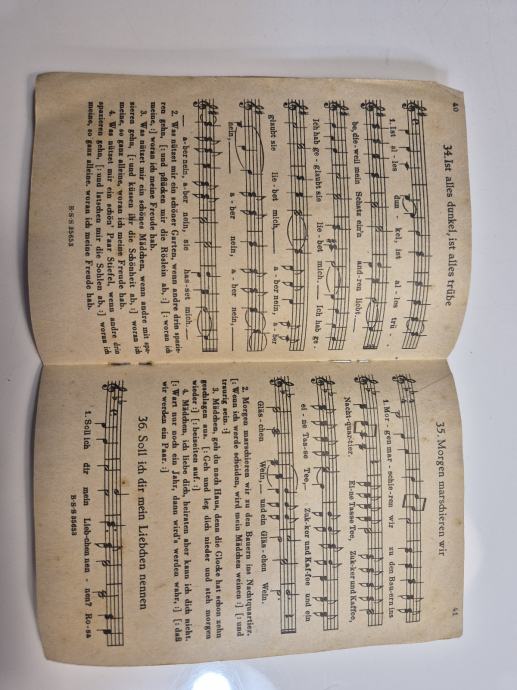 40
34. Ist alles dunkel, ist alles trübe
1. Ist al - les dun - kel, ist al - les trü -
be, die-weil mein Schatz ein'n and-ren liebt.
Ich hab ge - glaubt sie lie - bet mich, Ich hab ge -
glaubt sie lie - bet mich, a - ber nein, a -
ber nein, a - ber nein, a - ber nein,
a-ber nein, a-ber nein, sie has-set mich.
2. Was nützet mir ein schöner Garten, wenn andre drin spazie-
ren gehn, [: und pflücken mir die Röslein ab, :] [: woran ich
meine, :] woran ich meine Freude hab.
3. Was nützet mir ein schönes Mädchen, wenn andre mit spa-
zieren gehn, [: und küssen ihr die Schönheit ab, :] woran ich
meine, so ganz alleine, woran ich meine Freude hab.
4. Was nützet mir ein schön' Paar Stiefel, wenn andre drin
spazieren gehn, [: und latschen mir die Sohlen ab, :] woran ich
meine, so ganz alleine, woran ich meine Freude hab.
B·S·S 35653
41
35. Morgen marschieren wir
1. Mor - gen mar - schie - ren wir zu den Bau-ern ins
Nacht-quar-tier. Ei-ne Tasse Tee, Zuk-ker und Kaf-fee,
ei - ne Tas - se Tee, Zuk-ker und Kaf-fee und ein
Gläs - chen Wein, und ein Gläs - chen Wein.
2. Morgen marschieren wir zu den Bauern ins Nachtquartier.
[: Wenn ich werde scheiden, wird mein Mädchen weinen :] [: und
traurig sein. :]
3. Mädchen, geh du nach Haus, denn die Glocke hat schon zehn
geschlagen aus. [: Geh und leg dich nieder und steh morgen
wieder :] [: beizeiten auf. :]
4. Mädchen, ich liebe dich, heiraten aber kann ich dich nicht.
[: Wart nur noch ein Jahr, dann wird's werden wahr, :] [: daß
wir werden ein Paar. :]
36. Soll ich dir mein Liebchen nennen
1. Soll ich dir mein Lieb-chen nen - nen? Ro-sa
B·S·S 35653